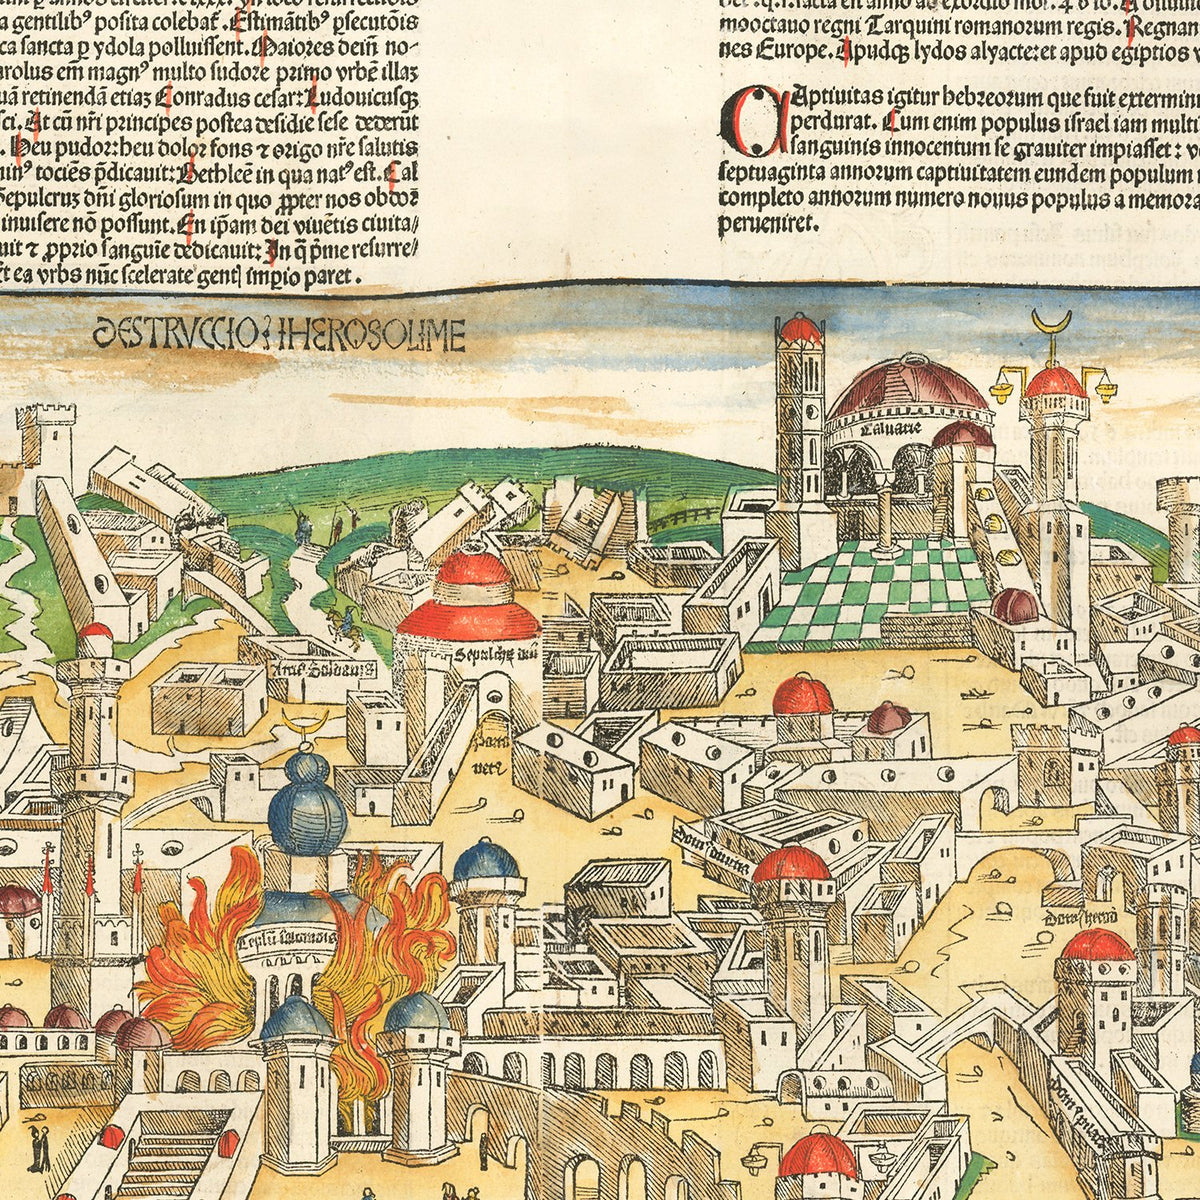 a gentilibꝰ posita colebat̃. Estimãtibꝰ ꝑsecutõis
ca sancta ꝑ ydola polluissent. Maiores dein̄ no-
arolus em̄ magnꝰ multo sudore primo vrbẽ illaꝫ
uã retinendã etiaꝫ Conradus cesar: Ludouicusqꝫ
sci. At cũ nr̃i principes postea desidie sese dederũt
. Heu pudor: heu dolor fons ⁊ origo nr̃e salutis
tociẽs p̃dicauit: Bethleẽ in qua natꝰ est. Cal
Sepulcruꝫ dñi gloriosum in quo ꝓpter nos obdor
inuisere nõ possunt. En ip̃am dei viuẽtis ciuita/
uit ⁊ ꝓprio sanguĩe dedicauit: In q̃ p̃me resurre/
Et ea vrbs nũc scelerate genti impio paret.
mooctauo regni Tarquini romanorum regis. Regnan
nes Europe. Apudqꝫ lydos alyacte: et apud egiptios v
CAptiuitas igitur hebreorum que fuit extermin
perdurat. Cum enim populus israel iam multi
sanguinis innocentum se grauiter impiasset: v
septuaginta annorum captiuitatem eundem populum
completo annorum numero nouus populus a memora
perueniret.
DESTRVCCIO IHEROSOLIME
Caluarie
Sepulchꝝ dñi
Porta
vetꝰ
Teplũ salomõis
Domꝰ herod
Domꝰ pilati